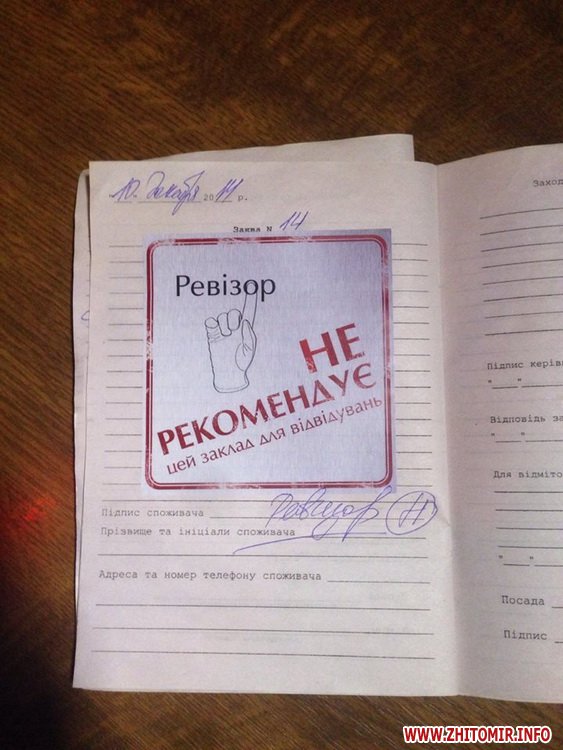 "10" Декабря 2014 р.
Заява N 14
Ревізор
НЕ
РЕКОМЕНДУЄ
цей заклад для відвідувань
Підпис споживача
Ревизор
Прізвище та ініціали споживача
Адреса та номер телефону споживача
Заход
Підпис керів
"___"
Відповідь за
"___"
Для відміто
"___"
Посада
Підпис
WWW.ZHITOMIR.INFO